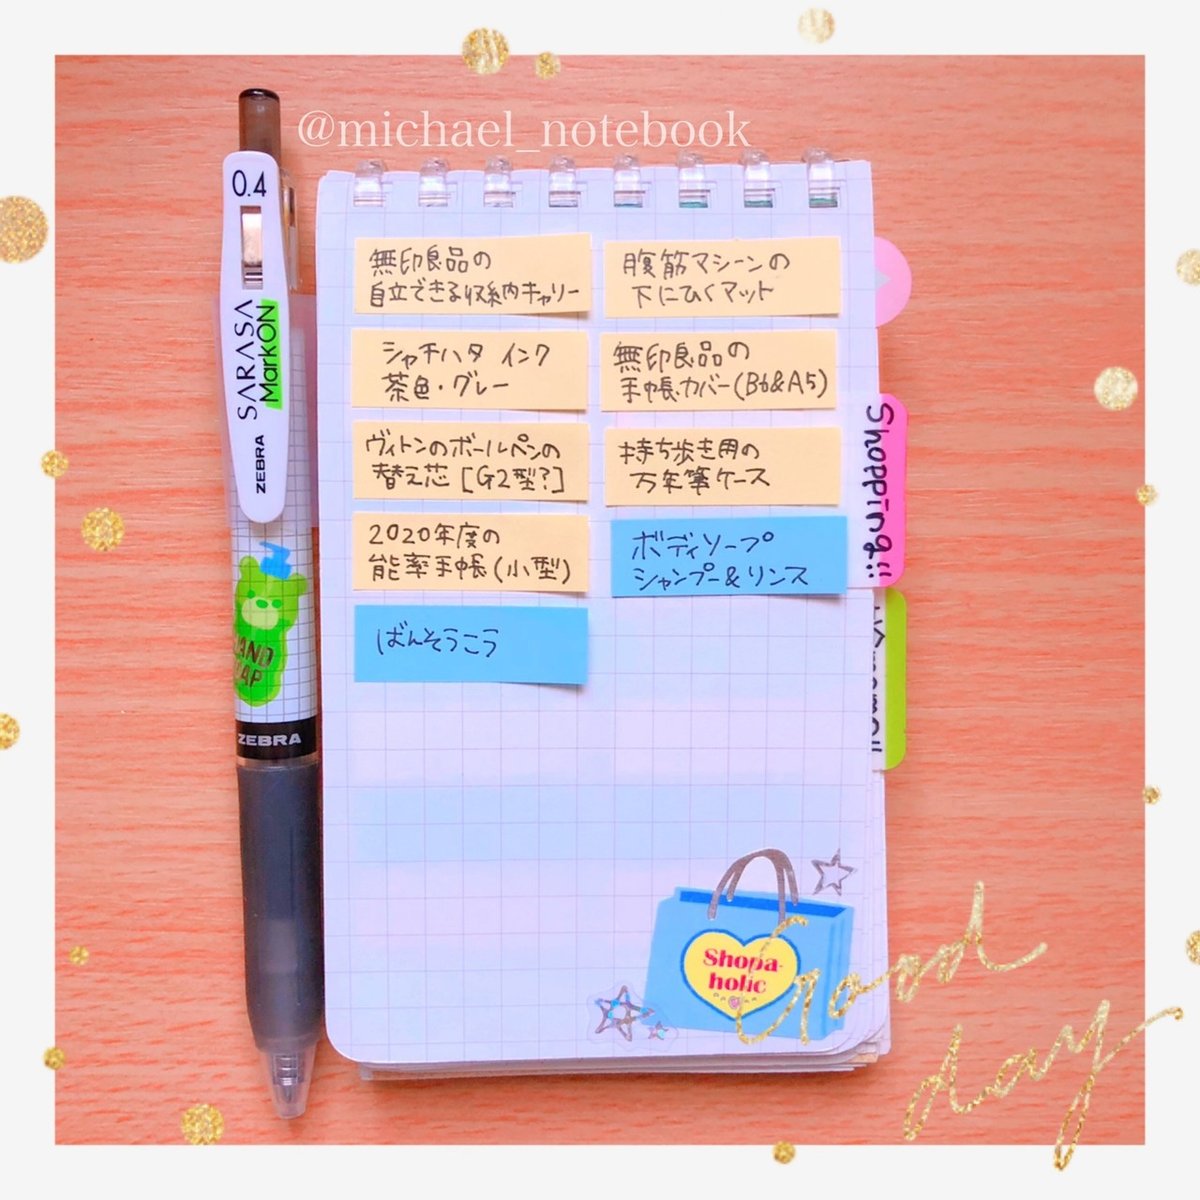 @michael_notebook
0.4
SARASA
MarkON
ZEBRA
HAND
ZEBRA
無印良品の
自立できる収納キャリー
腹筋マシーンの
下にひくマット
シャチハタ インク
茶色・グレー
無印良品の
手帳カバー(B6&A5)
ヴィトンのボールペンの
替え芯[G2型?]
持ち歩き用の
万年筆ケース
2020年度の
能率手帳(小型)
ボディソープ
シャンプー&リンス
ばんそうこう
Shoppping!!
Shopa-
holic
Good
day